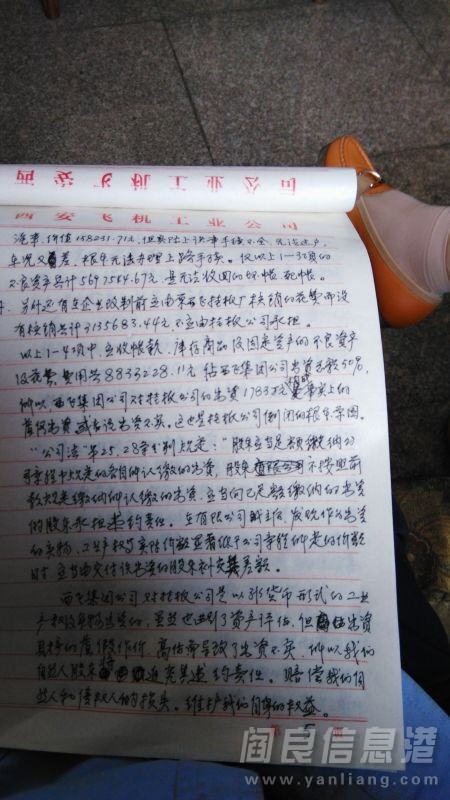 西安飞机工业公司
西安飞机工业公司
汽车,价值158231.71元,但实际上诉事手续不全,无法过户,
车况又差,根本无法办理上路手续。仅以上1-3项的
不良资产总计5697584.67元,是无法收回的坏帐、死帐。
4、另外还有在企业改制前应由原西飞挂板厂核销的花费而没
有核销共计3135683.44元不应由挂板公司承担。
以上1-4项中,应收帐款、库存商品及固定资产的不良资产
及花费、费用共8833228.11元 占西飞集团公司出资总数50%,
所以西飞集团公司对挂板公司的出资1783万元是事实上的
虚假出资或者说出资不实。这也是挂板公司倒闭的根本原因。
“公司法”第25、28条分别规定:“股东应当足额缴纳公
司章程中规定的各自所认缴的出资,股东不按照前
款规定缴纳所认缴的出资,应当向已足额缴纳的出资
的股东承担违约责任。在有限公司成立后,发现作为出资
的实物、工业产权等实际价额显著低于公司章程所定的价额
时,应当由交付该出资的股东补交其差额。
西飞集团公司对挂板公司是以非货币形式的工业
产权及实物出资的,虽然也进行了资产评估,但出资
且评的虚假作价,高估而导致了出资不实,所以我们
自然人股东将追究其违约责任。赔偿我们自
然人和债权人的损失。维护我们自身的权益。
第 5 页
阎良信息港
www.yanliang.com